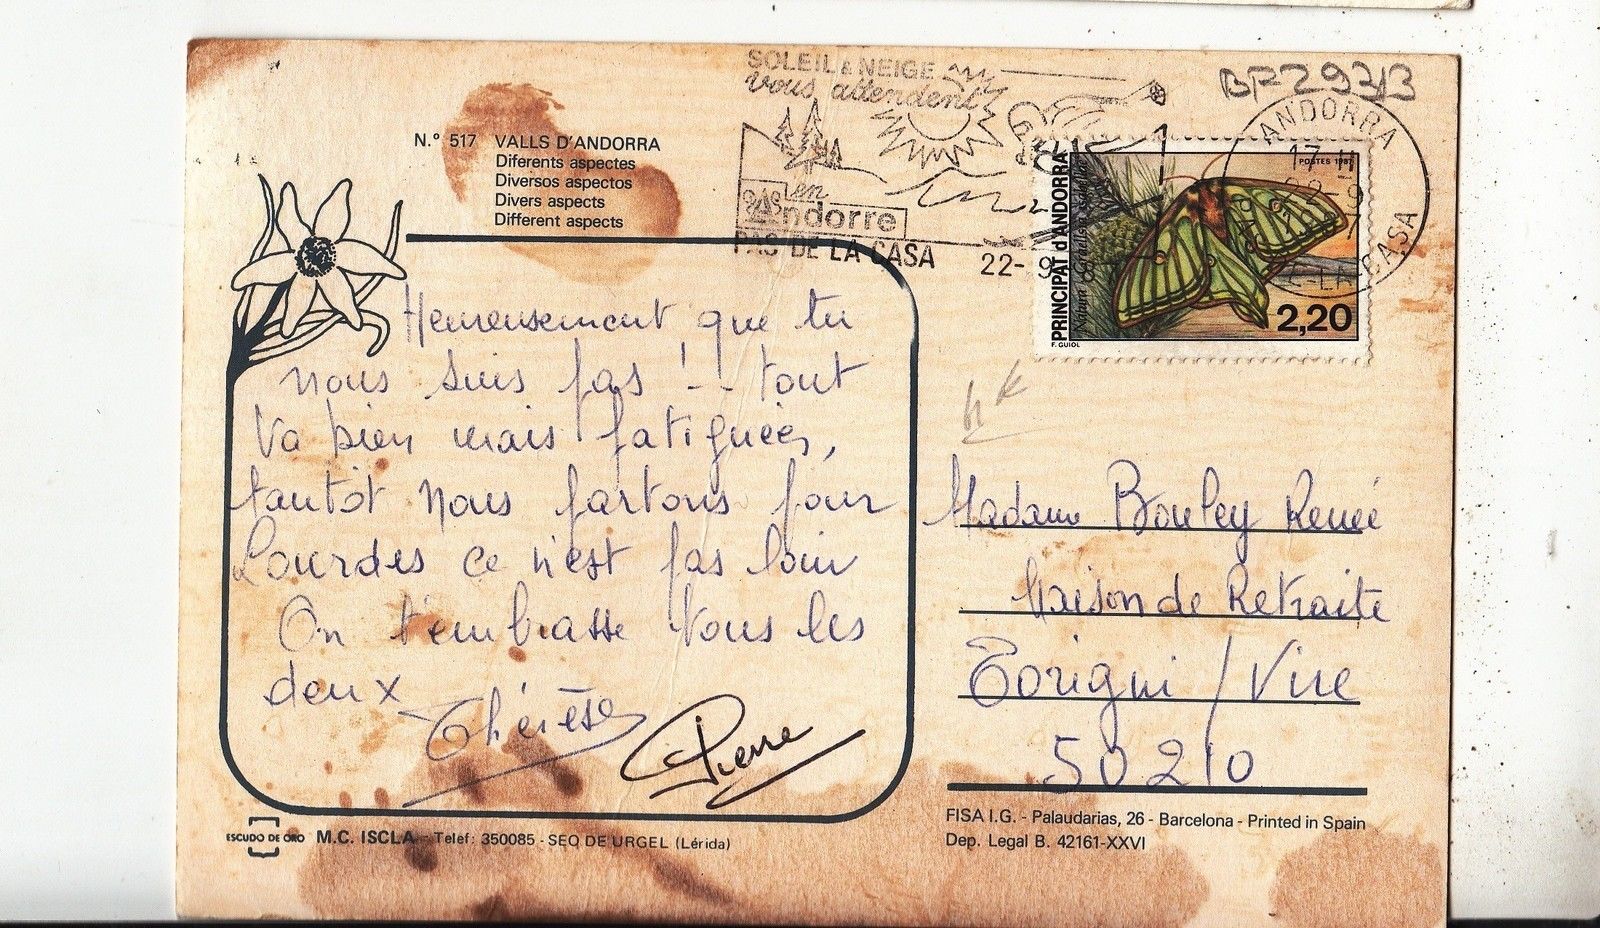 BF 293/3
SOLEIL & NEIGE
vous attendent
en
Andorre
PAS DE LA CASA
22-9
ANDORRA
17-H
22-9
LA CASA
N.º 517 VALLS D'ANDORRA
Diferents aspectes
Diversos aspectos
Divers aspects
Different aspects
PRINCIPAT d'ANDORRA
POSTES 1987
2,20
F. GUIOL
Heureusement que tu
nous suis pas !-- tout
va bien mais fatiguées,
tantôt nous partons pour
Lourdes ce n'est pas loin
On t'embrasse tous les
deux
Thérèse
Pierre
Madame Bouley Renée
Maison de Retraite
Torigni / Vire
50210
ESCUDO DE ORO M.C. ISCLA - Telef: 350085 - SEO DE URGEL (Lérida)
FISA I.G. - Palaudarias, 26 - Barcelona - Printed in Spain
Dep. Legal B. 42161-XXVI